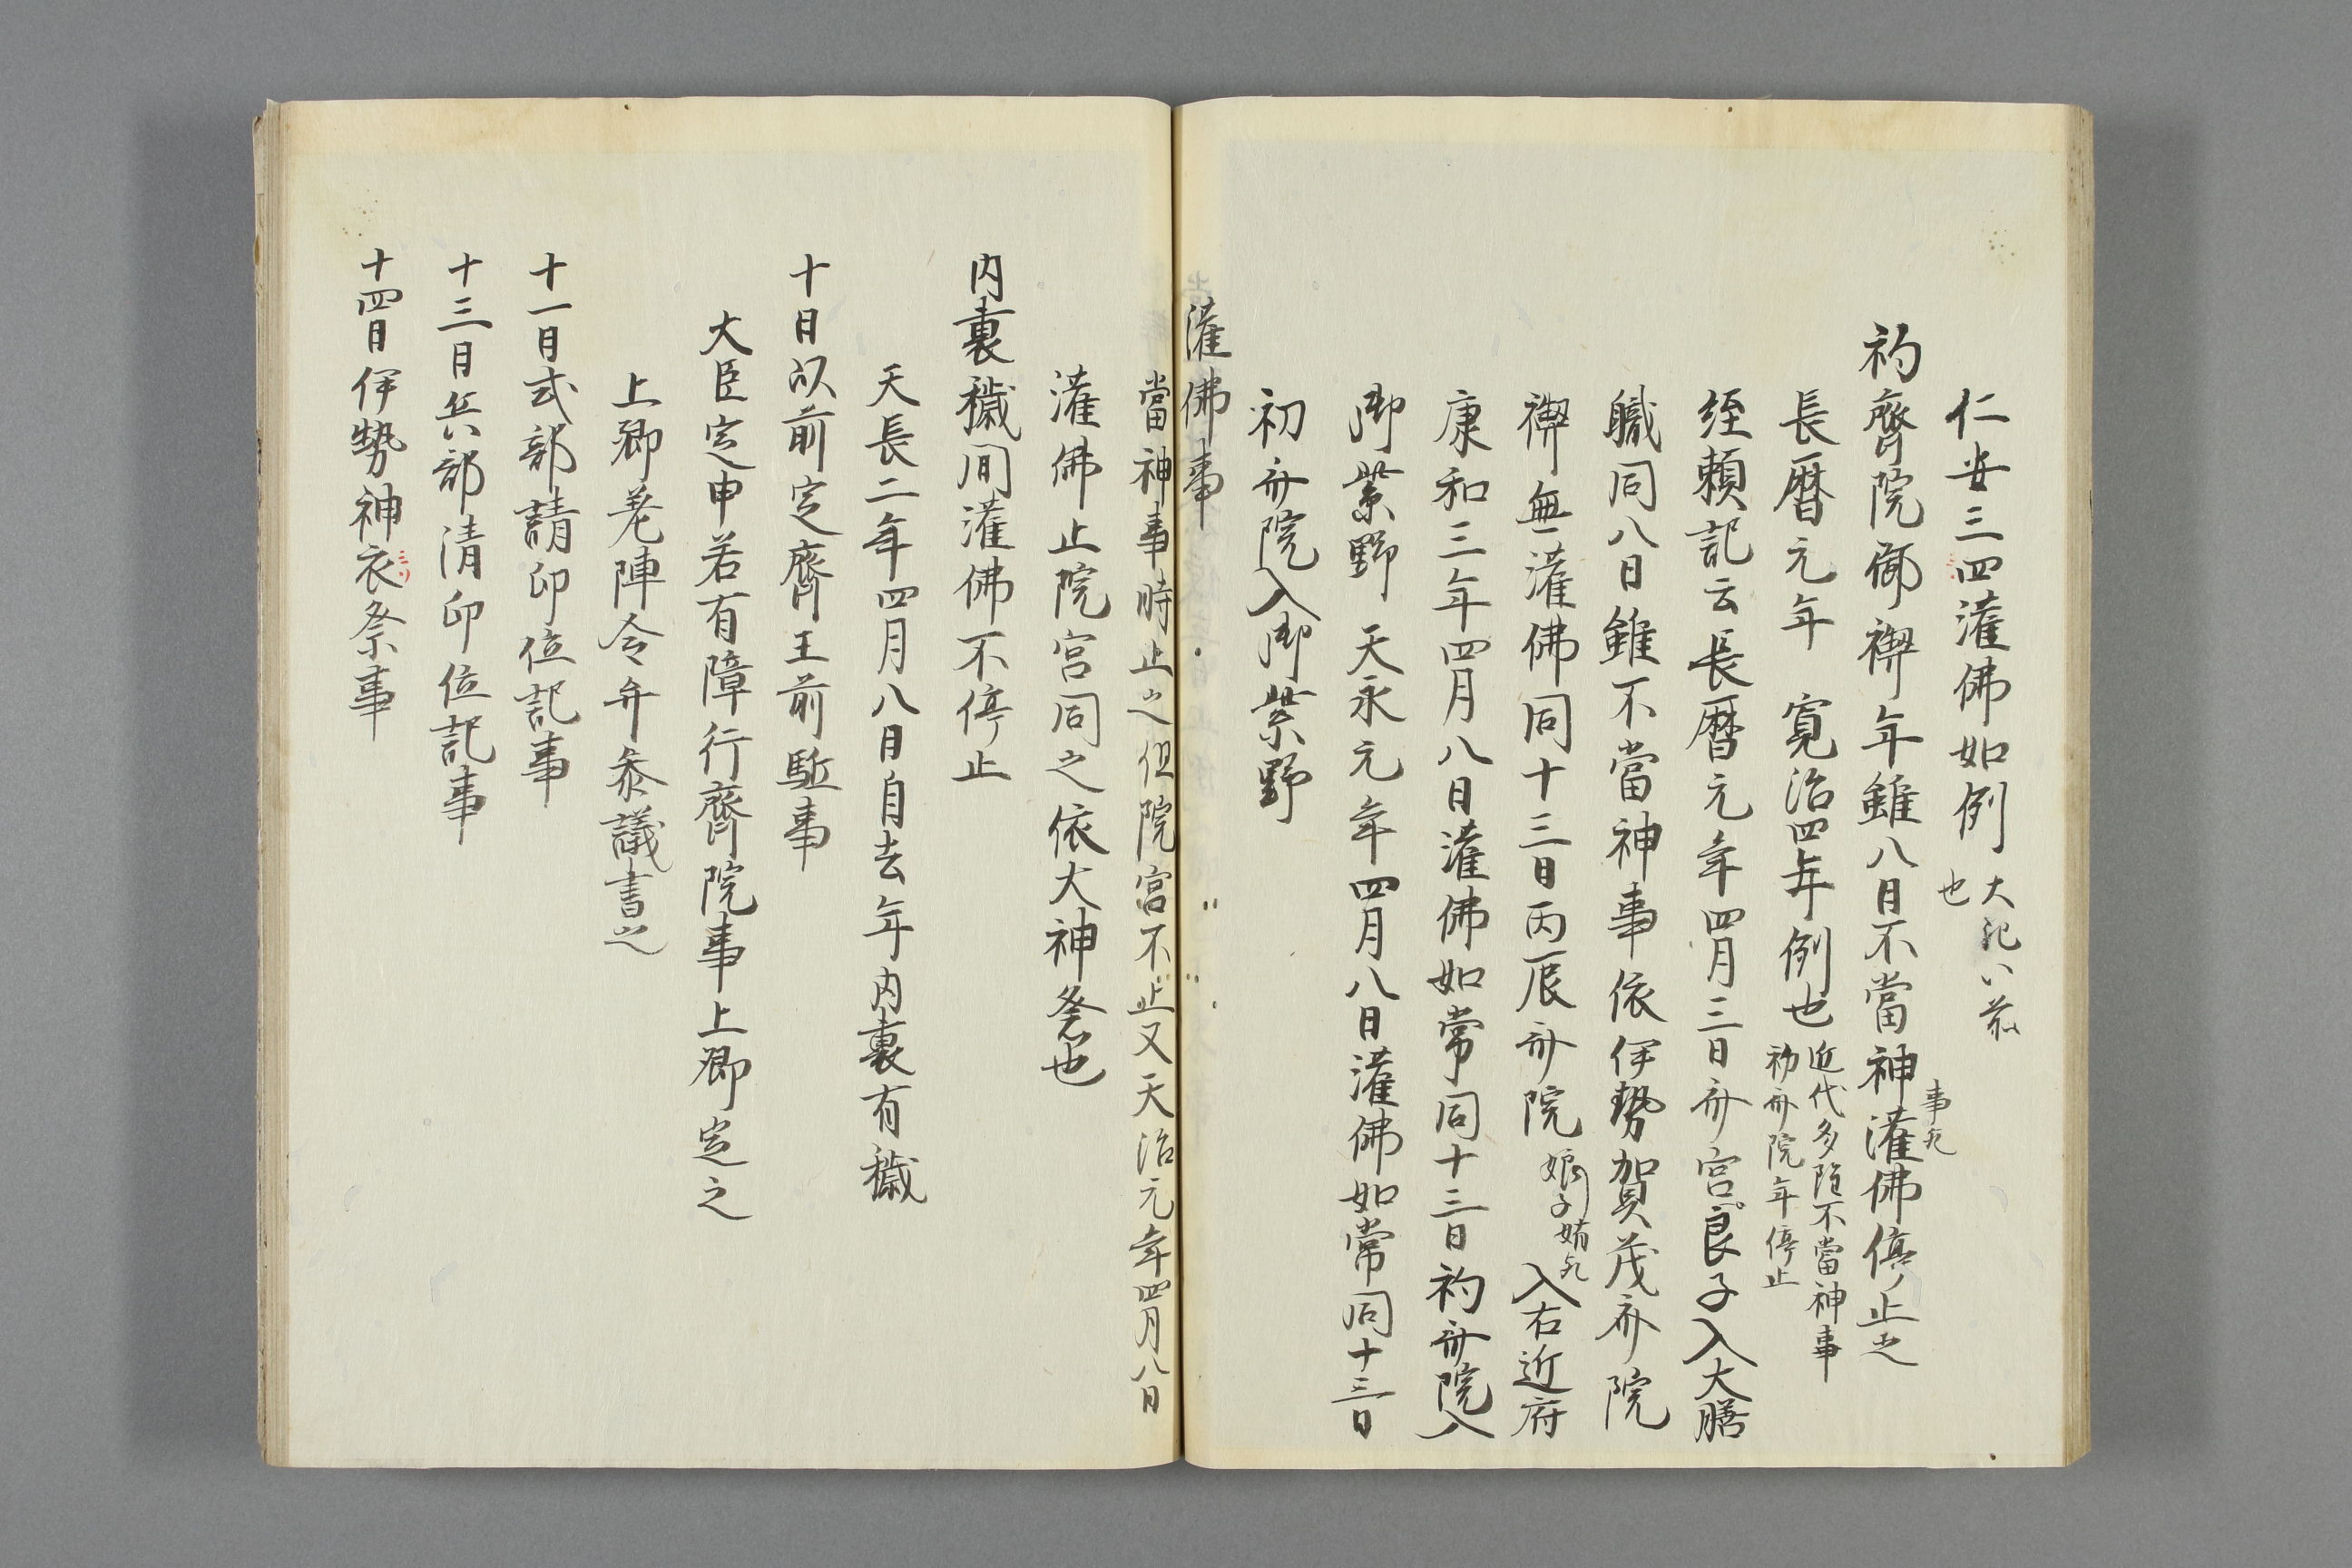 仁安三四灌佛如例 大
也
初齊院御禊年雖八日不當神灌佛停止之
事
長曆元年 寛治四年例也 近代多 不當神事
初斎院年停止
経頼記云長曆元年四月三日斎宮良子入大膳
職同八日雖不當神事依伊勢賀茂斎院
禊無灌佛同十三日丙辰斎院 娟子 入右近府
康和三年四月八日灌佛如常同十三日初斎院入
御紫野 天永元年四月八日灌佛如常同十三日
初斎院入御紫野
灌佛事
當神事時止之但院宮不止又天治元年四月八日
灌佛止院宮同之依大神祭也
内裏穢間灌佛不停止
天長二年四月八日自去年内裏有穢
十日以前定齊王前駈事
大臣定申若有障行齊院事上卿定之
上卿着陣令弁参議書之
十一日式部請印位記事
十三日兵部清印位記事
十四日伊勢神衣祭事